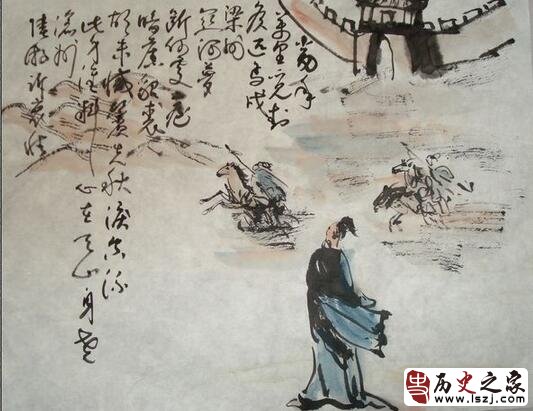 当年
万里觅封
侯匹马戍
梁州
关河夢
断何处尘
暗旧貂裘
胡未滅鬓先秋淚空流
此生谁料心在天山身老
滄州
陆游诉衷情
史
历史之家
www.lszj.com